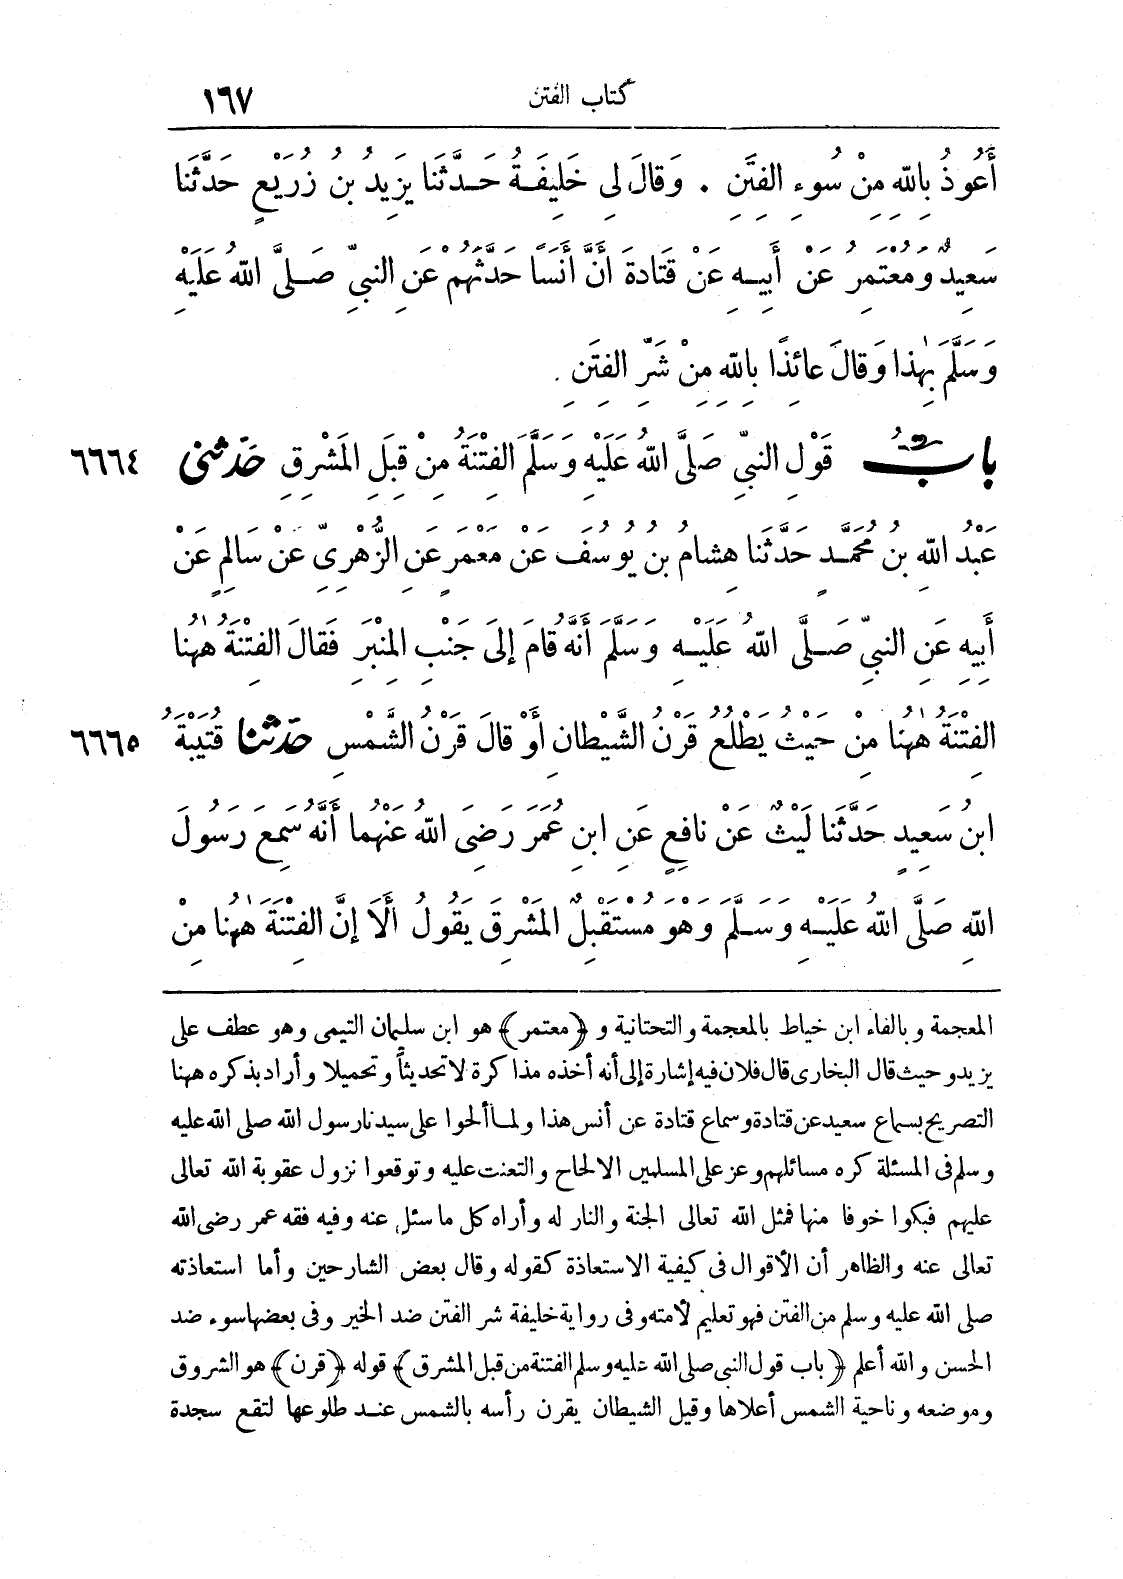 كتاب الفتن ١٦٧
أَعُوذُ بِاللهِ مِنْ سُوءِ الفِتَنِ . وَقَالَ لِي خَلِيفَةُ حَدَّثَنَا يَزِيدُ بنُ زُرَيْعٍ حَدَّثَنَا
سَعِيدٌ وَمُعْتَمِرُ عَنْ أَبِيهِ عَنْ قَتَادَةَ أَنَّ أَنَسًا حَدَّثَهُمْ عَنِ النبيِّ صَلَّى اللهُ عَلَيْهِ
وَسَلَّمَ بِهٰذا وَقالَ عائِذًا بِاللهِ مِنْ شَرِّ الفِتَنِ .
بابُ قَوْلِ النبيِّ صَلَّى اللهُ عَلَيْهِ وَسَلَّمَ الفِتْنَةُ مِنْ قِبَلِ المَشْرِقِ حَدّثني ٦٦٦٤
عَبْدُ اللهِ بنُ مُحَمَّدٍ حَدَّثَنا هِشامُ بنُ يُوسُفَ عَنْ مَعْمَرٍ عَنِ الزُّهْرِيِّ عَنْ سَالِمٍ عَنْ
أَبِيهِ عَنِ النبيِّ صَلَّى اللهُ عَلَيْهِ وَسَلَّمَ أَنَّهُ قامَ إِلَى جَنْبِ المِنْبَرِ فَقالَ الفِتْنَةُ هٰهُنا
الفِتْنَةُ هٰهُنا مِنْ حَيْثُ يَطْلُعُ قَرْنُ الشَّيْطانِ أَوْ قالَ قَرْنُ الشَّمْسِ حَدّثنا قُتَيْبَةُ ٦٦٦٥
ابنُ سَعِيدٍ حَدَّثَنا لَيْثٌ عَنْ نافِعٍ عَنِ ابنِ عُمَرَ رَضِيَ اللهُ عَنْهُما أَنَّهُ سَمِعَ رَسُولَ
اللهِ صَلَّى اللهُ عَلَيْهِ وَسَلَّمَ وَهُوَ مُسْتَقْبِلٌ المَشْرِقَ يَقُولُ أَلَا إِنَّ الفِتْنَةَ هٰهُنا مِنْ
المعجمة وبالفاء ابن خياط بالمعجمة والتحتانية و ﴿معتمر﴾ هو ابن سليمان التيمى وهو عطف على
يزيد وحيث قال البخارى قال فلان فيه إشارة إلى أنه أخذه مذاكرة لا تحديثاً وتحميلا وأراد بذكره ههنا
التصريح بسماع سعيد عن قتادة وسماع قتادة عن أنس هذا ولما ألحوا على سيدنا رسول الله صلى الله عليه
وسلم فى المسئلة كره مسائلهم وعز على المسلمين الالحاح والتعنت عليه وتوقعوا نزول عقوبة الله تعالى
عليهم فبكوا خوفا منها فمثل الله تعالى الجنة والنار له وأراه كل ما سئل عنه وفيه فقه عمر رضى الله
تعالى عنه والظاهر أن الأقوال فى كيفية الاستعاذة كقوله وقال بعض الشارحين وأما استعاذته
صلى الله عليه وسلم من الفتن فهو تعليم لأمته وفى رواية خليفة شر الفتن ضد الخير وفى بعضها سوء ضد
الحسن والله أعلم ﴿باب قول النبى صلى الله عليه وسلم الفتنة من قبل المشرق﴾ قوله ﴿قرن﴾ هو الشروق
وموضعه وناحية الشمس أعلاها وقيل الشيطان يقرن رأسه بالشمس عند طلوعها لتقع سجدة